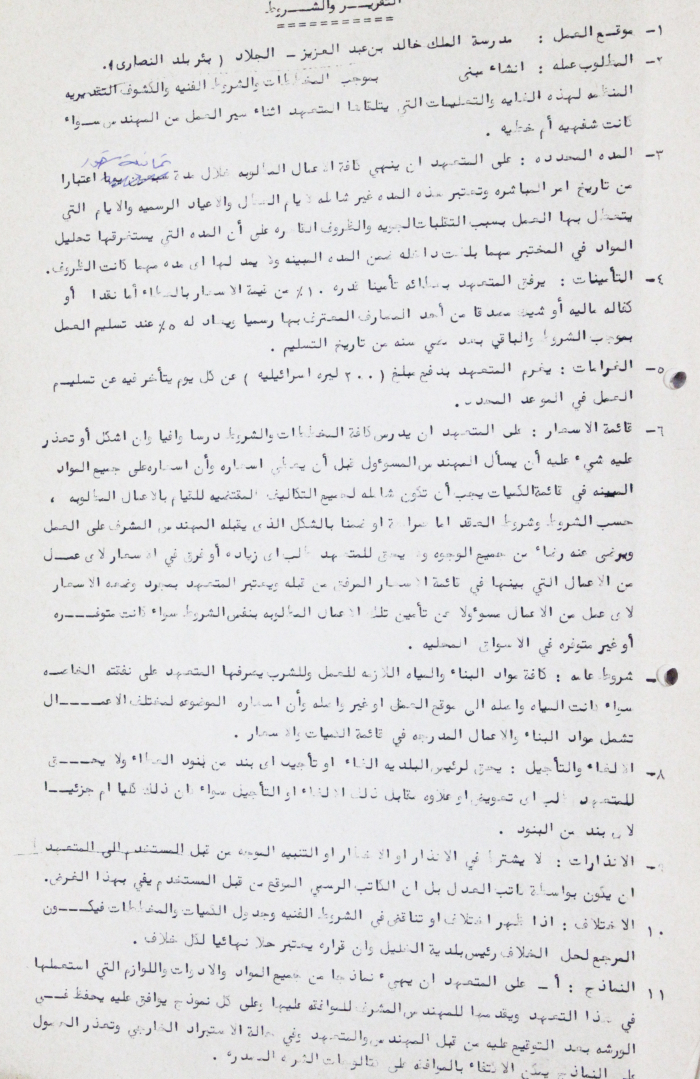 التقريـــر والشـــروط
١- موقع العمل : مدرسة الملك خالد بن عبد العزيز - الجلاد ( بئر بلد النصارى ).
٢- المطلوب عمله : انشاء مبنى بموجب المخططات والشروط الفنيه والكشوف التقديريه
المنظمه لهذه الغايه والتعليمات التي يتلقاها المتعهد اثناء سير العمل من المهندس ســواء
كانت شفهيه أم خطيه .
ثمانية شهور
٣- المده المحدده : على المتعهد ان ينهي كافة الاعمال المطلوبه خلال مدة يوما اعتبارا
من تاريخ امر المباشره وتعتبر هذه المده غير شامله لايام العطل والاعياد الرسميه والايام التي
يتعطل بها العمل بسبب التقلبات الجويه والظروف القاهره على أن المده التي يستغرقها تحليل
المواد في المختبر مهما بلغت داخله ضمن المده المبينه ولا يمدد لها اى مده مهما كانت الظروف.
٤- التأمينات : يرفق المتعهد بعطائه تأمينا قدره ١٠٪ من قيمة الاسعار بالعطاء أما نقدا أو
كفاله ماليه أو شيك مصدقا من أحد المصارف المعترف بها رسميا ويعاد له ٥٪ عند تسليم العمل
بموجب الشروط والباقي بعد مضي سنه من تاريخ التسليم .
٥- الغرامات : يغرم المتعهد بدفع مبلغ ( ٢٠٠ ليره اسرائيليه ) عن كل يوم يتأخر فيه عن تسليـم
العمل في الموعد المحدد.
٦- قائمة الاسعار : على المتعهد ان يدرس كافة المخططات والشروط درسا وافيا وان اشكل أو تعذر
عليه شيء عليه أن يسأل المهندس المسؤول قبل أن يعطي اسعاره وأن اسعاره على جميع المواد
المبينه في قائمة الكميات يجب أن تكون شامله لجميع التكاليف المقتضيه للقيام بالاعمال المطلوبه ،
حسب الشروط وشروط العقد اما صراحة او ضمنا بالشكل الذى يقبله المهندس المشرف على العمل
ويرضى عنه رضاء من جميع الوجوه ولا يحق للمتعهد طلب اى زياده أو فرق في الاسعار لاى عمــل
من الاعمال التي بينها في قائمة الاسعار المرفق من قبله ويعتبر المتعهد بمجرد وضعه الاسعار
لاى عمل من الاعمال مسؤولا عن تأمين تلك الاعمال المطلوبه بنفس الشروط سواء كانت متوفـــره
أو غير متوفره في الاسواق المحليه .
- شروط عامه : كافة مواد البناء والمياه اللازمه للعمل وللشرب يصرفها المتعهد على نفقته الخاصه
سواء كانت المياه واصله الى موقع العمل او غير واصله وأن اسعاره الموضوعه لمختلف الاعمــــال
تشمل مواد البناء والاعمال المدرجه في قائمة الكميات والاسعار .
٨- الالغاء والتأجيل : يحق لرئيس البلديه الغاء او تأجيل اى بند من بنود العطاء ولا يحــــق
للمتعهد طلب اى تعويض او علاوه مقابل ذلك الالغاء او التأجيل سواء كان ذلك كليا ام جزئيــا
لاى بند من البنود .
٩- الانذارات : لا يشترط في الانذار او الاخطار او التنبيه الموجه من قبل المستخدم الى المتعهد
ان يكون بواسطة كاتب العدل بل ان الكتاب الرسمي الموقع من قبل المستخدم يفي بهذا الغرض.
١٠ الاختلاف : اذا ظهر اختلاف او تناقض في الشروط الفنيه وجدول الكميات والمخططات فيكـــون
المرجع لحل الخلاف رئيس بلدية الخليل وان قراره يعتبر حلا نهائيا لكل خلاف .
١١ النماذج : أ - على المتعهد ان يهيء نماذجا من جميع المواد والادوات واللوازم التي استعملها
في هذا التعهد ويقدمها للمهندس المشرف للموافقه عليها وعلى كل نموذج يوافق عليه يحفظ فــي
الورشه بعد التوقيع عليه من قبل المهندس والمتعهد وفي حالة الاستيراد الخارجي وتعذر الحصول
على النماذج يمكن الاكتفاء بالموافقه على كتالوجات الشركه المصدره .